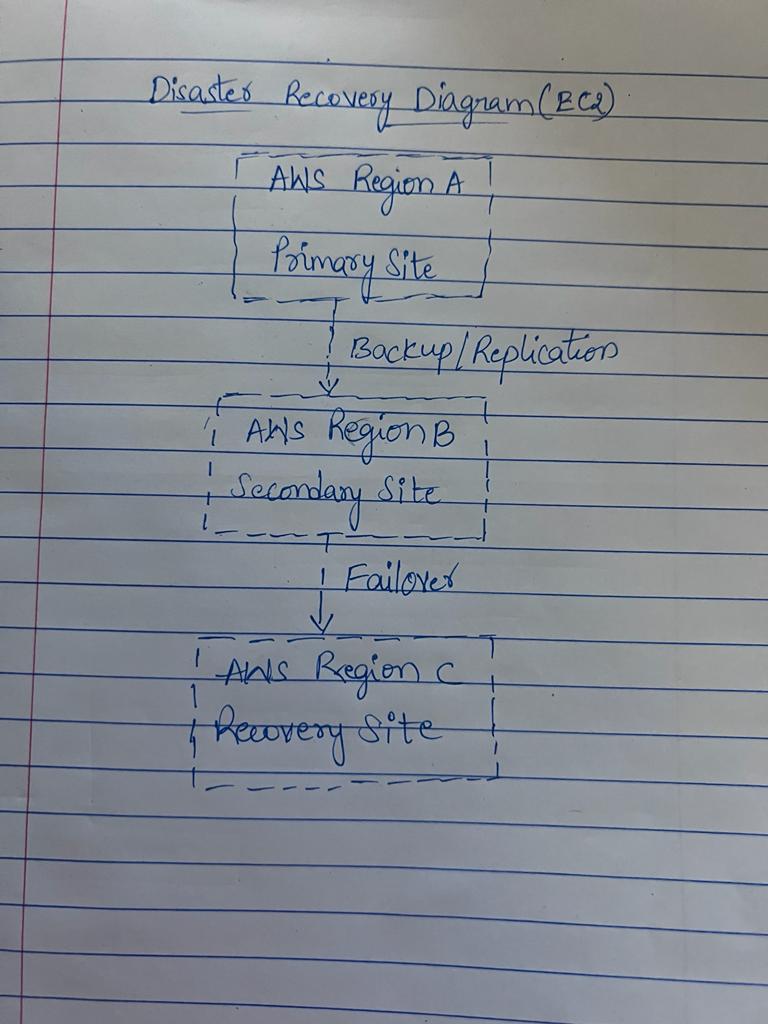 Disaster Recovery Diagram (EC2)
AWS Region A
Primary Site
Backup/Replication
AWS Region B
Secondary Site
Failover
AWS Region C
Recovery Site